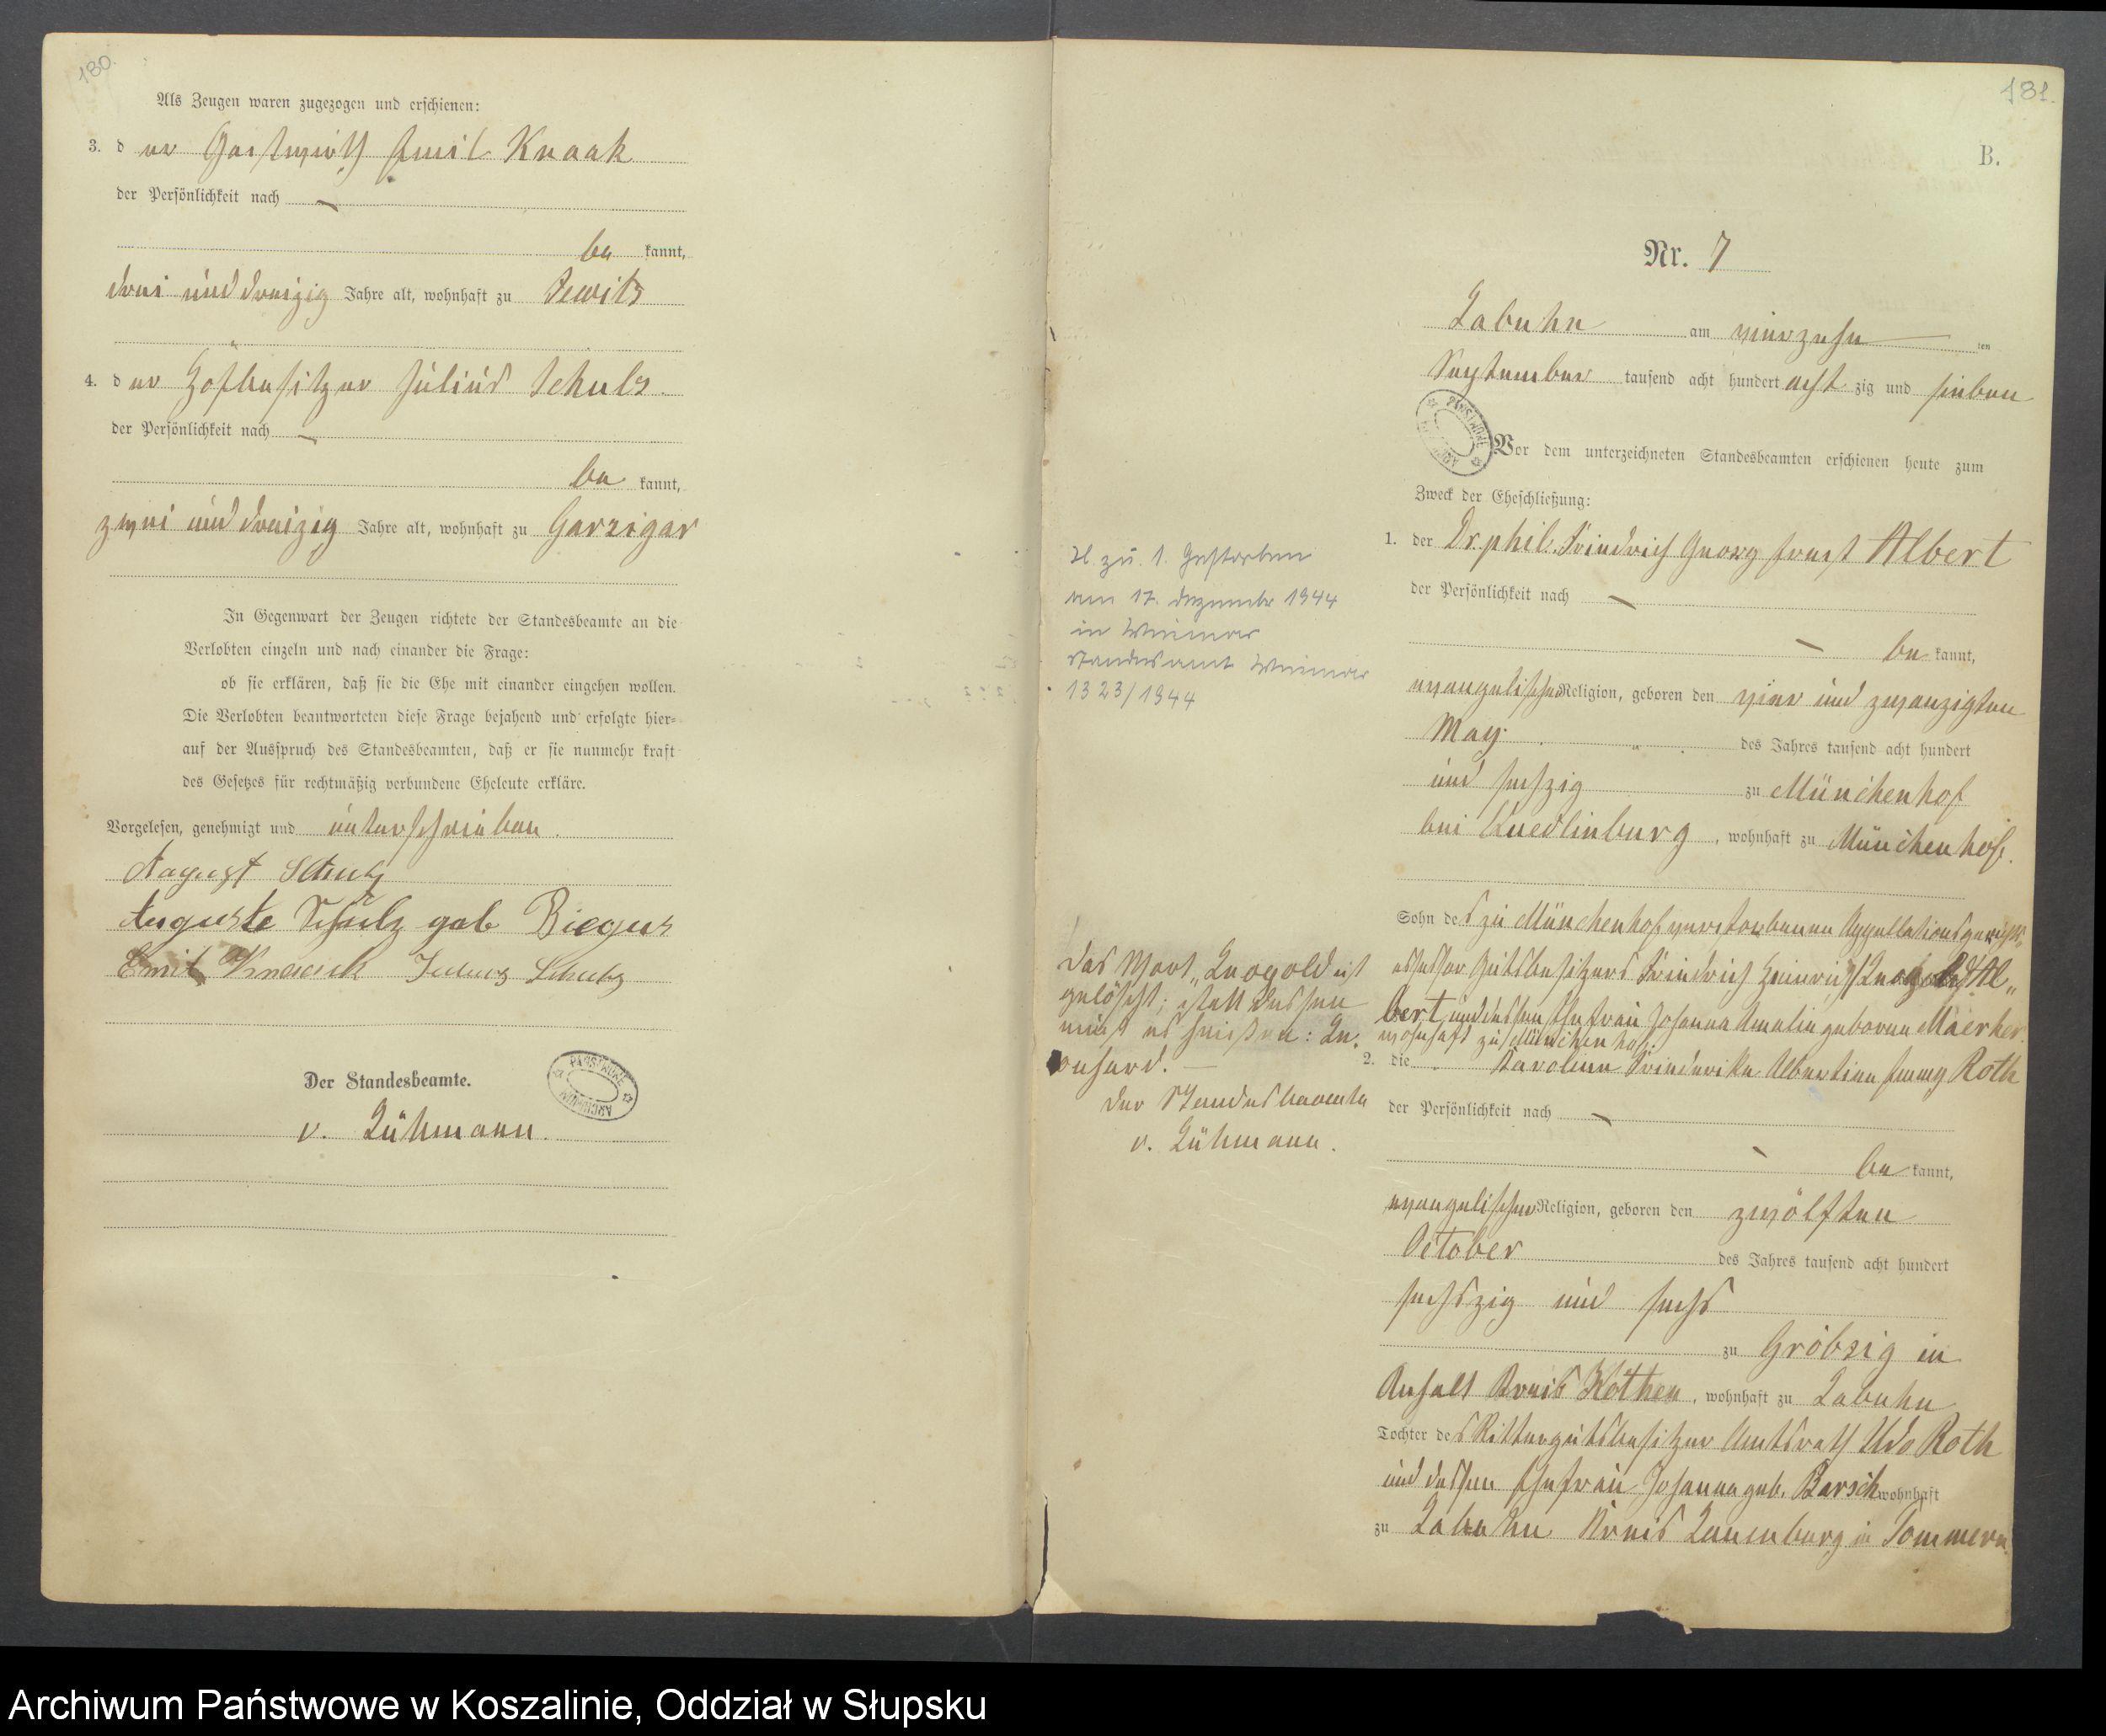 180.
Als Zeugen waren zugezogen und erschienen:
3. der Gastwirth Emil Knaak
der Persönlichkeit nach
be kannt,
drei und dreizig Jahre alt, wohnhaft zu
4. der Hofbesitzer Julius Schulz.
der Persönlichkeit nach
be kannt,
zwei und dreizig Jahre alt, wohnhaft zu Garzigar
In Gegenwart der Zeugen richtete der Standesbeamte an die
Verlobten einzeln und nach einander die Frage:
ob sie erklären, daß sie die Ehe mit einander eingehen wollen.
Die Verlobten beantworteten diese Frage bejahend und erfolgte hier=
auf der Ausspruch des Standesbeamten, daß er sie nunmehr kraft
des Gesetzes für rechtmäßig verbundene Eheleute erkläre.
Vorgelesen, genehmigt und unterschrieben.
August Schulz
Auguste Schulz geb Biegus
Emil Knaack Julius Schulz
Der Standesbeamte.
v. Lühmann.
181.
B.
Nr. 7
Labuhn am vierzehn ten
September tausend acht hundert acht zig und sieben
Vor dem unterzeichneten Standesbeamten erschienen heute zum
Zweck der Eheschließung:
1. der Dr. phil. Friedrich Georg Ernst Albert
der Persönlichkeit nach
be kannt,
evangelischer Religion, geboren den vier und zwanzigten
May des Jahres tausend acht hundert
und sechzig zu Münchenhof
bei Quedlinburg, wohnhaft zu Münchenhof.
Sohn des zu Münchenhof verstorbenen Appellationsgerichts
assessor Gutsbesitzers Friedrich Heinrich Leopold Al„
bert und dessen Ehefrau Johanna Amalie geborene Maerker
wohnhaft zu Münchenhof.
2. die Karoline Friederike Albertine Emmy Roth
der Persönlichkeit nach
be kannt,
evangelischer Religion, geboren den zwölften
October des Jahres tausend acht hundert
sechszig und sechs
zu Gröbzig in
Anhalt Kreis Köthen, wohnhaft zu Labuhn
Tochter des Rittergutsbesitzer Amtsrath Udo Roth
und dessen Ehefrau Johanna geb. Barsch wohnhaft
zu Labuhn Kreis Lauenburg in Pommern.
H. zu. 1. Gestorben
am 17. Dezember 1944
in Weimar
Standesamt Weimar
1323/1944
Das Wort „Leopold ist
gelöscht; statt dessen
muß es heißen: Le„
onhard. —
Der Standesbeamte
v. Lühmann.
Archiwum Państwowe w Koszalinie, Oddział w Słupsku